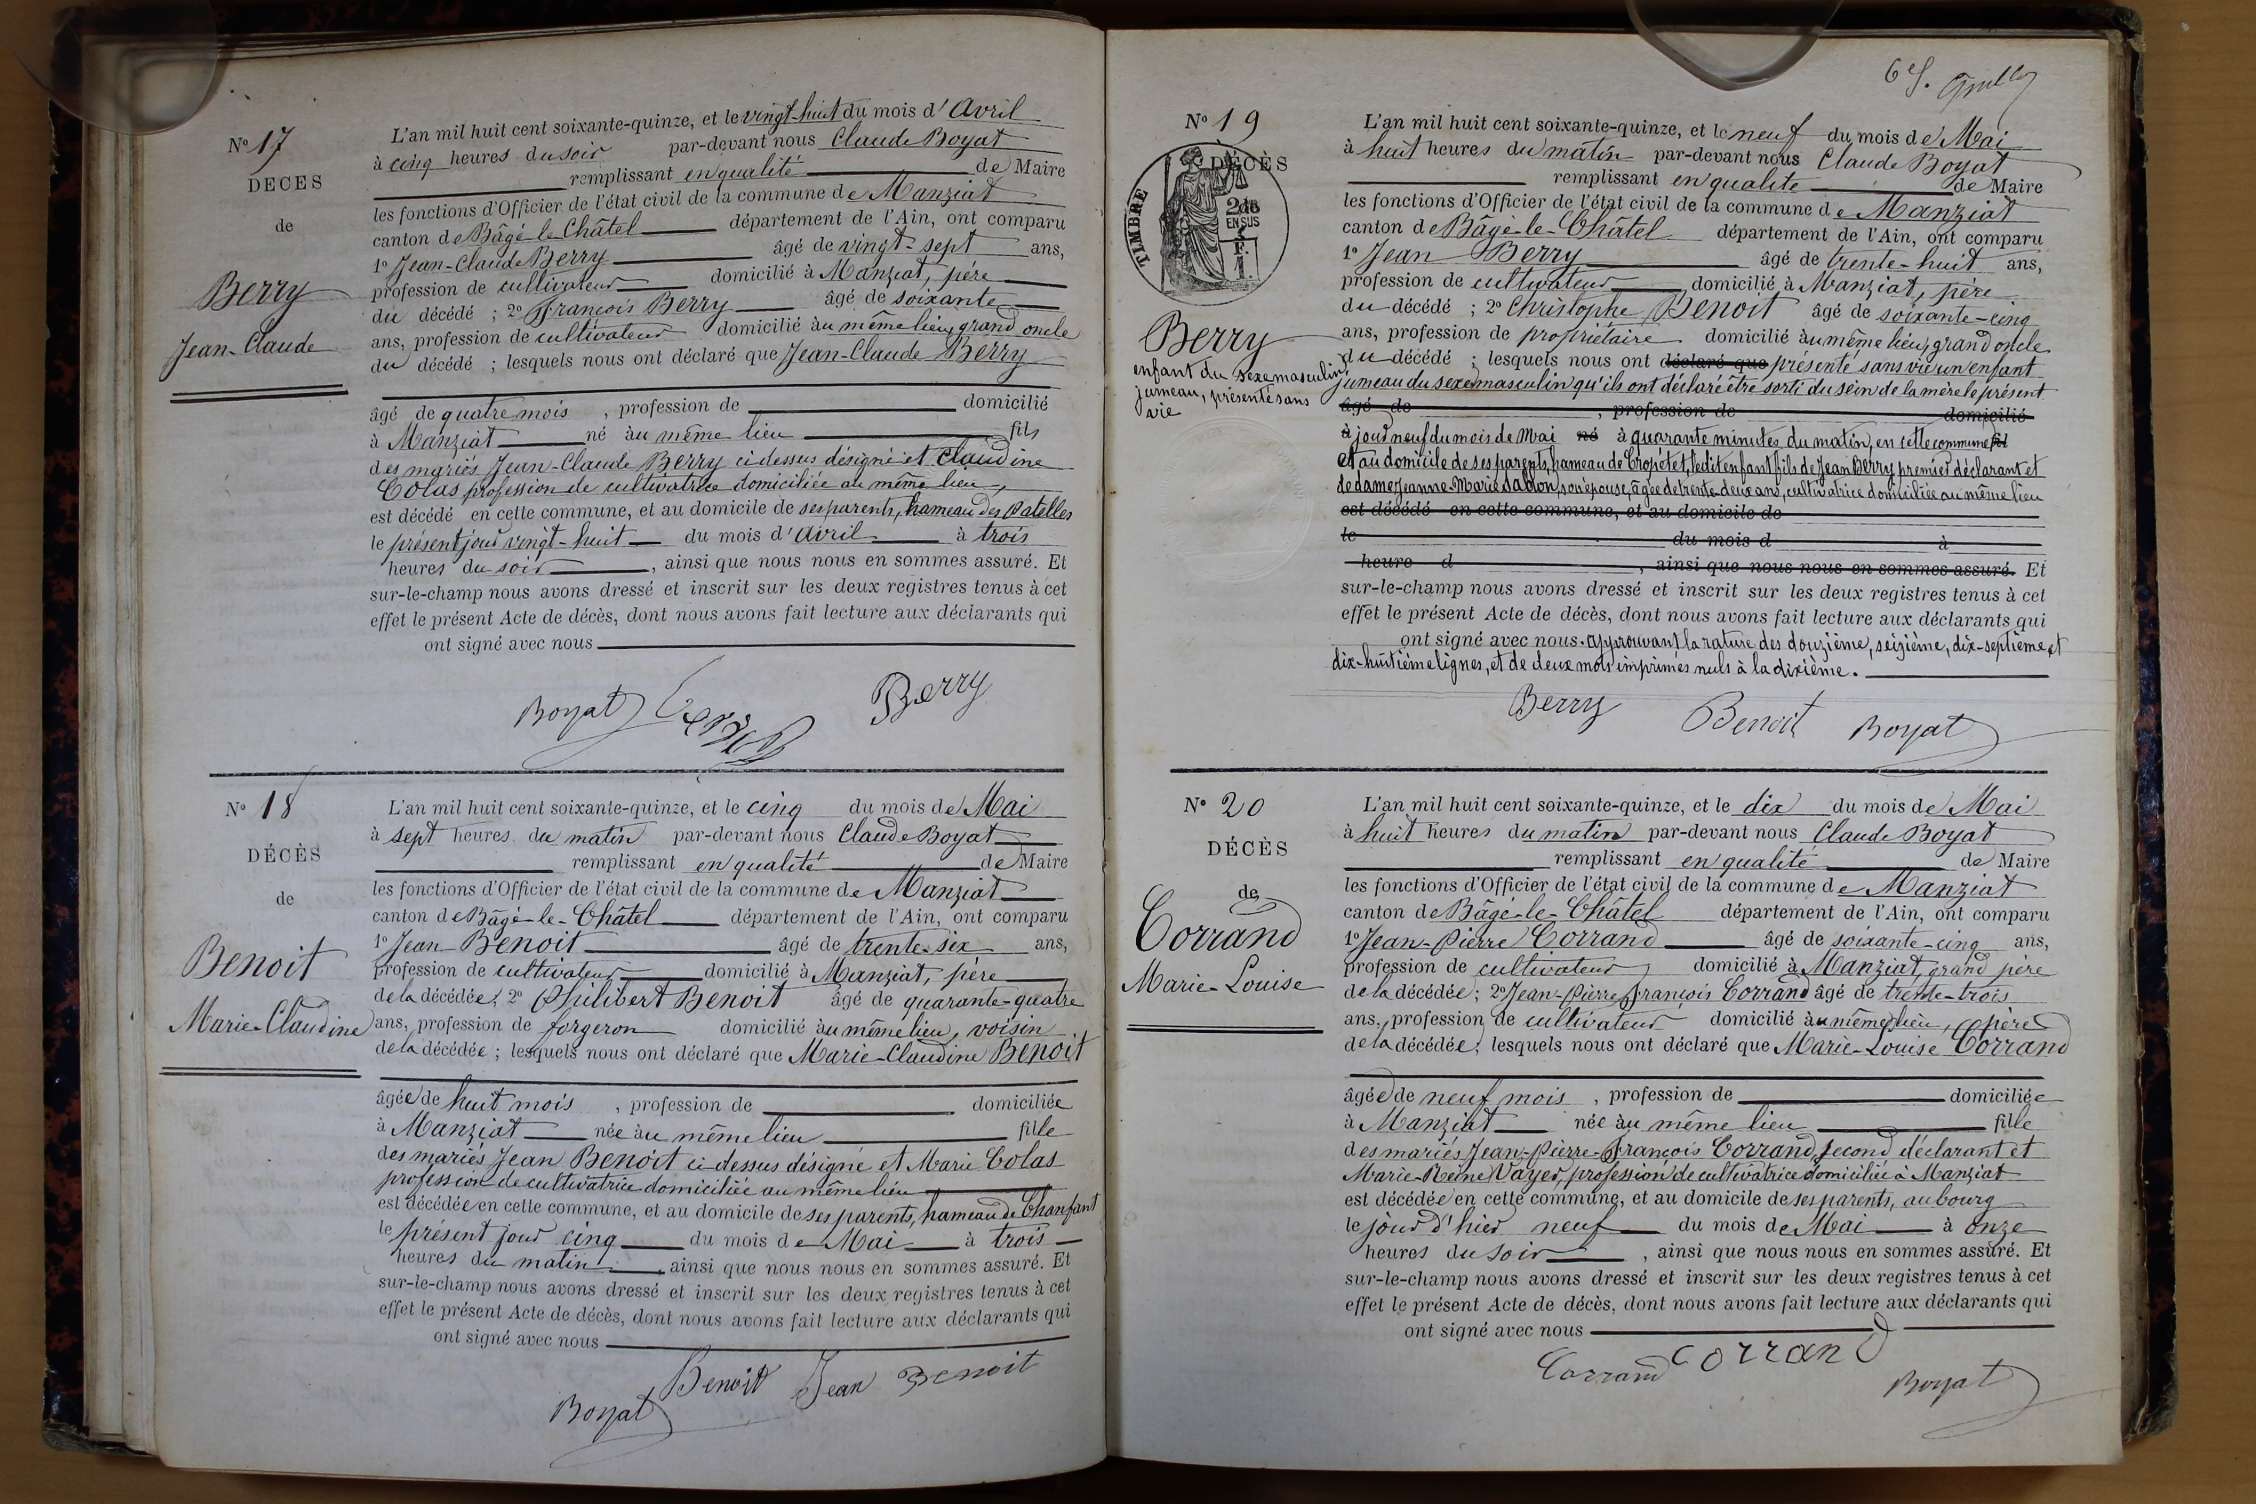 N° 17
DECES
de
Berry
Jean-Claude
L'an mil huit cent soixante-quinze, et le vingt-huit du mois d'Avril
à cinq heures du soir par-devant nous Claude Boyat
remplissant en qualité de Maire
les fonctions d'Officier de l'état civil de la commune de Manziat
canton de Bâgé-le-Châtel département de l'Ain, ont comparu
1° Jean-Claude Berry âgé de vingt-sept ans,
profession de cultivateur domicilié à Manziat, père
du décédé ; 2° François Berry âgé de soixante
ans, profession de cultivateur domicilié au même lieu, grand oncle
du décédé ; lesquels nous ont déclaré que Jean-Claude Berry
âgé de quatre mois , profession de domicilié
à Manziat né au même lieu fils
des mariés Jean-Claude Berry ci dessus désigné et Claudine
Colas profession de cultivatrice domiciliée au même lieu,
est décédé en cette commune, et au domicile de ses parents, hameau des Patelles
le présent jour vingt-huit du mois d'Avril à trois
heures du soir , ainsi que nous nous en sommes assuré. Et
sur-le-champ nous avons dressé et inscrit sur les deux registres tenus à cet
effet le présent Acte de décès, dont nous avons fait lecture aux déclarants qui
ont signé avec nous
Boyat Berry
N° 18
DÉCÈS
de
Benoit
Marie-Claudine
L'an mil huit cent soixante-quinze, et le cinq du mois de Mai
à sept heures du matin par-devant nous Claude Boyat
remplissant en qualité de Maire
les fonctions d'Officier de l'état civil de la commune de Manziat
canton de Bâgé-le-Châtel département de l'Ain, ont comparu
1° Jean Benoit âgé de trente-six ans,
profession de cultivateur domicilié à Manziat, père
de la décédée; 2° Philibert Benoit âgé de quarante-quatre
ans, profession de forgeron domicilié au même lieu, voisin
de la décédée ; lesquels nous ont déclaré que Marie-Claudine Benoit
âgée de huit mois , profession de domiciliée
à Manziat née au même lieu fille
des mariés Jean Benoit ci dessus désigné et Marie Colas
profession de cultivatrice domiciliée au même lieu
est décédée en cette commune, et au domicile de ses parents, hameau de Chanfant
le présent jour cinq du mois de Mai à trois
heures du matin , ainsi que nous nous en sommes assuré. Et
sur-le-champ nous avons dressé et inscrit sur les deux registres tenus à cet
effet le présent Acte de décès, dont nous avons fait lecture aux déclarants qui
ont signé avec nous
Boyat Benoit Jean Benoit
N° 19
DÉCÈS
TIMBRE
2 d es
EN SUS
Berry
enfant du sexe masculin
jumeau, présenté sans
vie
L'an mil huit cent soixante-quinze, et le neuf du mois de Mai
à huit heures du matin par-devant nous Claude Boyat
remplissant en qualité de Maire
les fonctions d'Officier de l'état civil de la commune de Manziat
canton de Bâgé-le-Châtel département de l'Ain, ont comparu
1° Jean Berry âgé de trente-huit ans,
profession de cultivateur domicilié à Manziat, père
du décédé ; 2° Christophe Benoit âgé de soixante-cinq
ans, profession de propriétaire domicilié au même lieu, grand oncle
du décédé ; lesquels nous ont déclaré que présenté sans vie un enfant
jumeau du sexe masculin qu'ils ont déclaré être sorti du sein de la mère le présent
âgé de , profession de domicilié
à jour neuf du mois de Mai né à quarante minutes du matin, en cette commune fil
et au domicile de ses parents, hameau de Cropétet, ledit enfant fils de Jean Berry premier déclarant et
de dame Jeanne-Marie Sablon, son épouse, âgée de trente-deux ans, cultivatrice domiciliée au même lieu
est décédé en cette commune, et au domicile de
le du mois d à
heure d , ainsi que nous nous en sommes assuré. Et
sur-le-champ nous avons dressé et inscrit sur les deux registres tenus à cet
effet le présent Acte de décès, dont nous avons fait lecture aux déclarants qui
ont signé avec nous. approuvant la rature des douzième, seizième, dix-septième et
dix-huitième lignes, et de deux mots imprimés nuls à la dixième.
Berry Benoit Boyat
N° 20
DÉCÈS
de
Corrand
Marie-Louise
L'an mil huit cent soixante-quinze, et le dix du mois de Mai
à huit heures du matin par-devant nous Claude Boyat
remplissant en qualité de Maire
les fonctions d'Officier de l'état civil de la commune de Manziat
canton de Bâgé-le-Châtel département de l'Ain, ont comparu
1° Jean-Pierre Corrand âgé de soixante-cinq ans,
profession de cultivateur domicilié à Manziat, grand père
de la décédée; 2° Jean-Pierre François Corrand âgé de trente-trois
ans, profession de cultivateur domicilié au même lieu, père
de la décédée; lesquels nous ont déclaré que Marie-Louise Corrand
âgée de neuf mois , profession de domiciliée
à Manziat née au même lieu fille
des mariés Jean-Pierre-François Corrand, second déclarant et
Marie-Reine Vayer, profession de cultivatrice domiciliée à Manziat
est décédée en cette commune, et au domicile de ses parents, au bourg
le jour d'hier neuf du mois de Mai à onze
heures du soir , ainsi que nous nous en sommes assuré. Et
sur-le-champ nous avons dressé et inscrit sur les deux registres tenus à cet
effet le présent Acte de décès, dont nous avons fait lecture aux déclarants qui
ont signé avec nous
Corrand Corrand
Boyat